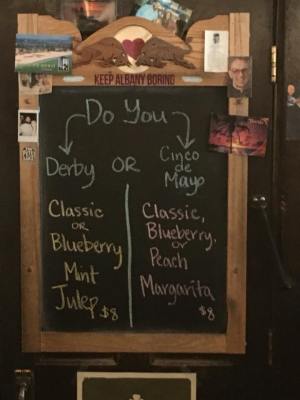 KEEP ALBANY BORING
Do You
Derby OR Cinco de Mayo
Classic
OR
Blueberry
Mint
Julep $8
Classic,
Blueberry,
or
Peach
Margarita
$8